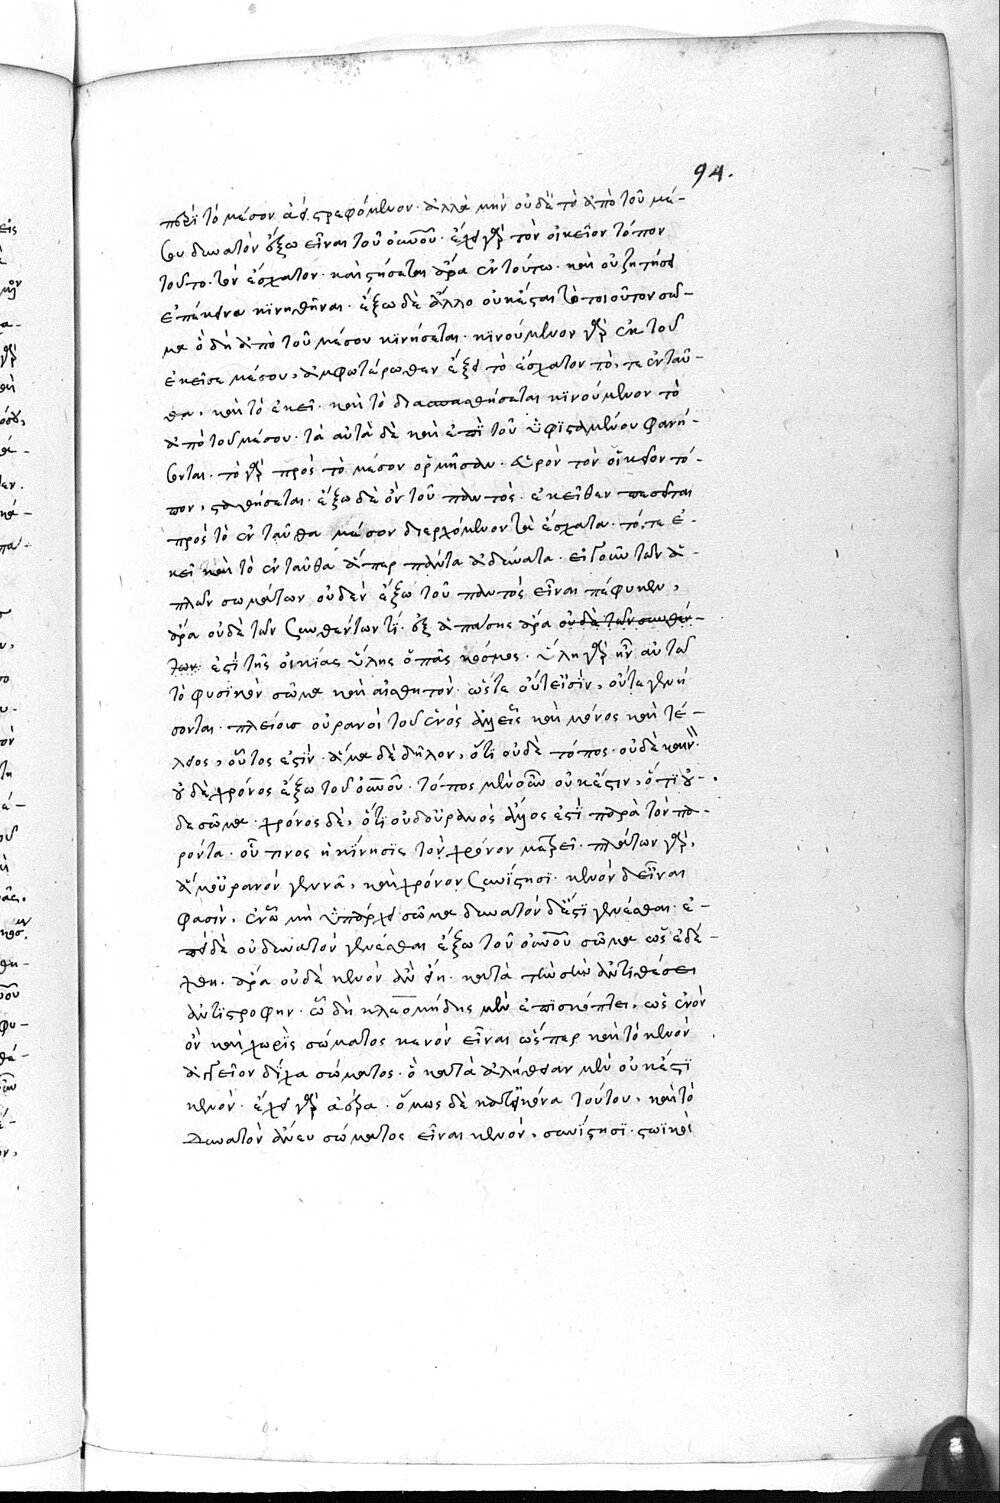 94.
περὶ τὸ μέσον ἀεὶ στρεφόμενον. ἀλλὰ μὴν οὐδὲ τὸ ἀπὸ τοῦ μέ-
σου δυνατὸν ἔξω εἶναι τοῦ οὐρανοῦ. ἔχει γὰρ τὸν οἰκεῖον τόπον
τοῦτο τὸν ἔσχατον. καὶ στήσεται ἄρα ἐν τούτῳ. καὶ οὐ ζητήσει
ἐπέκεινα κινηθῆναι. ἔξω δὲ ἄλλο οὐκ ἔσται τὸ τοιοῦτον σῶ-
μα ὃ δὴ ἀπὸ τοῦ μέσου κινήσεται. κινούμενον γὰρ ἐκ τοῦ
ἐκεῖσε μέσου, ἀμφωτέρωθεν ἕξει τὸ ἔσχατον τό, τε ἐνταῦ-
θα, καὶ τὸ ἐκεῖ. καὶ τὸ κινούμενον τὸ
ἀπὸ τοῦ μέσου. τὰ αὐτὰ δὲ καὶ ἐπὶ τοῦ ὑφισταμένου φανή-
σεται. τὸ γὰρ πρὸς τὸ μέσον ὁρμῆσαν. εὑρὸν τὸν οἰκεῖον τό-
πον, σταθήσεται. ἔξω δὲ ὂν τοῦ παντός. ἐκεῖθεν πεσεῖται
πρὸς τὸ ἐνταῦθα μέσον διερχόμενον τὰ ἔσχατα. τό, τε ἐ-
κεῖ καὶ τὸ ἐνταῦθα ἅπερ πάντα ἀδύνατα. εἰ γοῦν τῶν ἁ-
πλῶν σωμάτων οὐδὲν ἔξω τοῦ παντὸς εἶναι πέφυκεν,
ἄρα οὐδὲ τῶν συνθέτων τί. ἐξ ἁπάσης ἄρα οὐδὲ τῶν συνθέ-
των ἐστὶ τῆς οἰκείας ὕλης ὁ πᾶς κόσμος. ὕλη γὰρ ἦν αὐτοῦ
τὸ φυσικὸν σῶμα καὶ αἰσθητόν. ὥστε οὔτε εἰσὶν, οὔτε γενή
σονται πλείους οὐρανοὶ τοῦ ἑνός ἀλλ' εἷς καὶ μόνος καὶ τέ-
λειος, οὗτος ἐστίν. ἅμα δὲ δῆλον, ὅτι οὐδὲ τόπος. οὐδὲ κενὸν.
οὐδὲ χρόνος ἔξω τοῦ οὐρανοῦ. τόπος μὲν οὖν οὐκ ἔστιν, ὅτι οὐ-
δὲ σῶμα. χρόνος δέ, ὅτι οὐδ' οὐρανὸς ἄλλος ἐστὶ παρὰ τὸν πα-
ρόντα. οὗ τινος ἡ κίνησις τὸν χρόνον μετρεῖ. πλάτων γὰρ,
ἅμα οὐρανὸν γεννᾶ, καὶ χρόνον συνίστησι. κενὸν δ' εἶναι
φασὶν, ἐν ᾧ μὴ ὑπάρχει σῶμα δυνατὸν δ' ἐστὶ γενέσθαι. ἐ-
πεὶ δὲ οὐ δυνατὸν γενέσθαι ἔξω τοῦ οὐρανοῦ σῶμα ὡς ἐδέ-
χθη. ἄρα οὐδὲ κενὸν ἂν εἴη. κατὰ τὴν σὺν ἀντιθέσει
ἀντιστροφὴν. ᾧ δὴ κλεομήδης μὲν ἐπισκόπτει, ὡς ἐνὸν
ὂν καὶ χωρὶς σώματος κενὸν εἶναι ὥσπερ καὶ τὸ κενὸν
ἀγγεῖον δίχα σώματος. ὃ κατὰ ἀλήθειαν μὲν οὐκ ἔστι
κενὸν. ἔχει γὰρ ἀέρα. ὅμως δὲ τούτου, καὶ τὸ
δυνατὸν ἄνευ σώματος εἶναι κενόν, συνίστησι. στωικοὶ